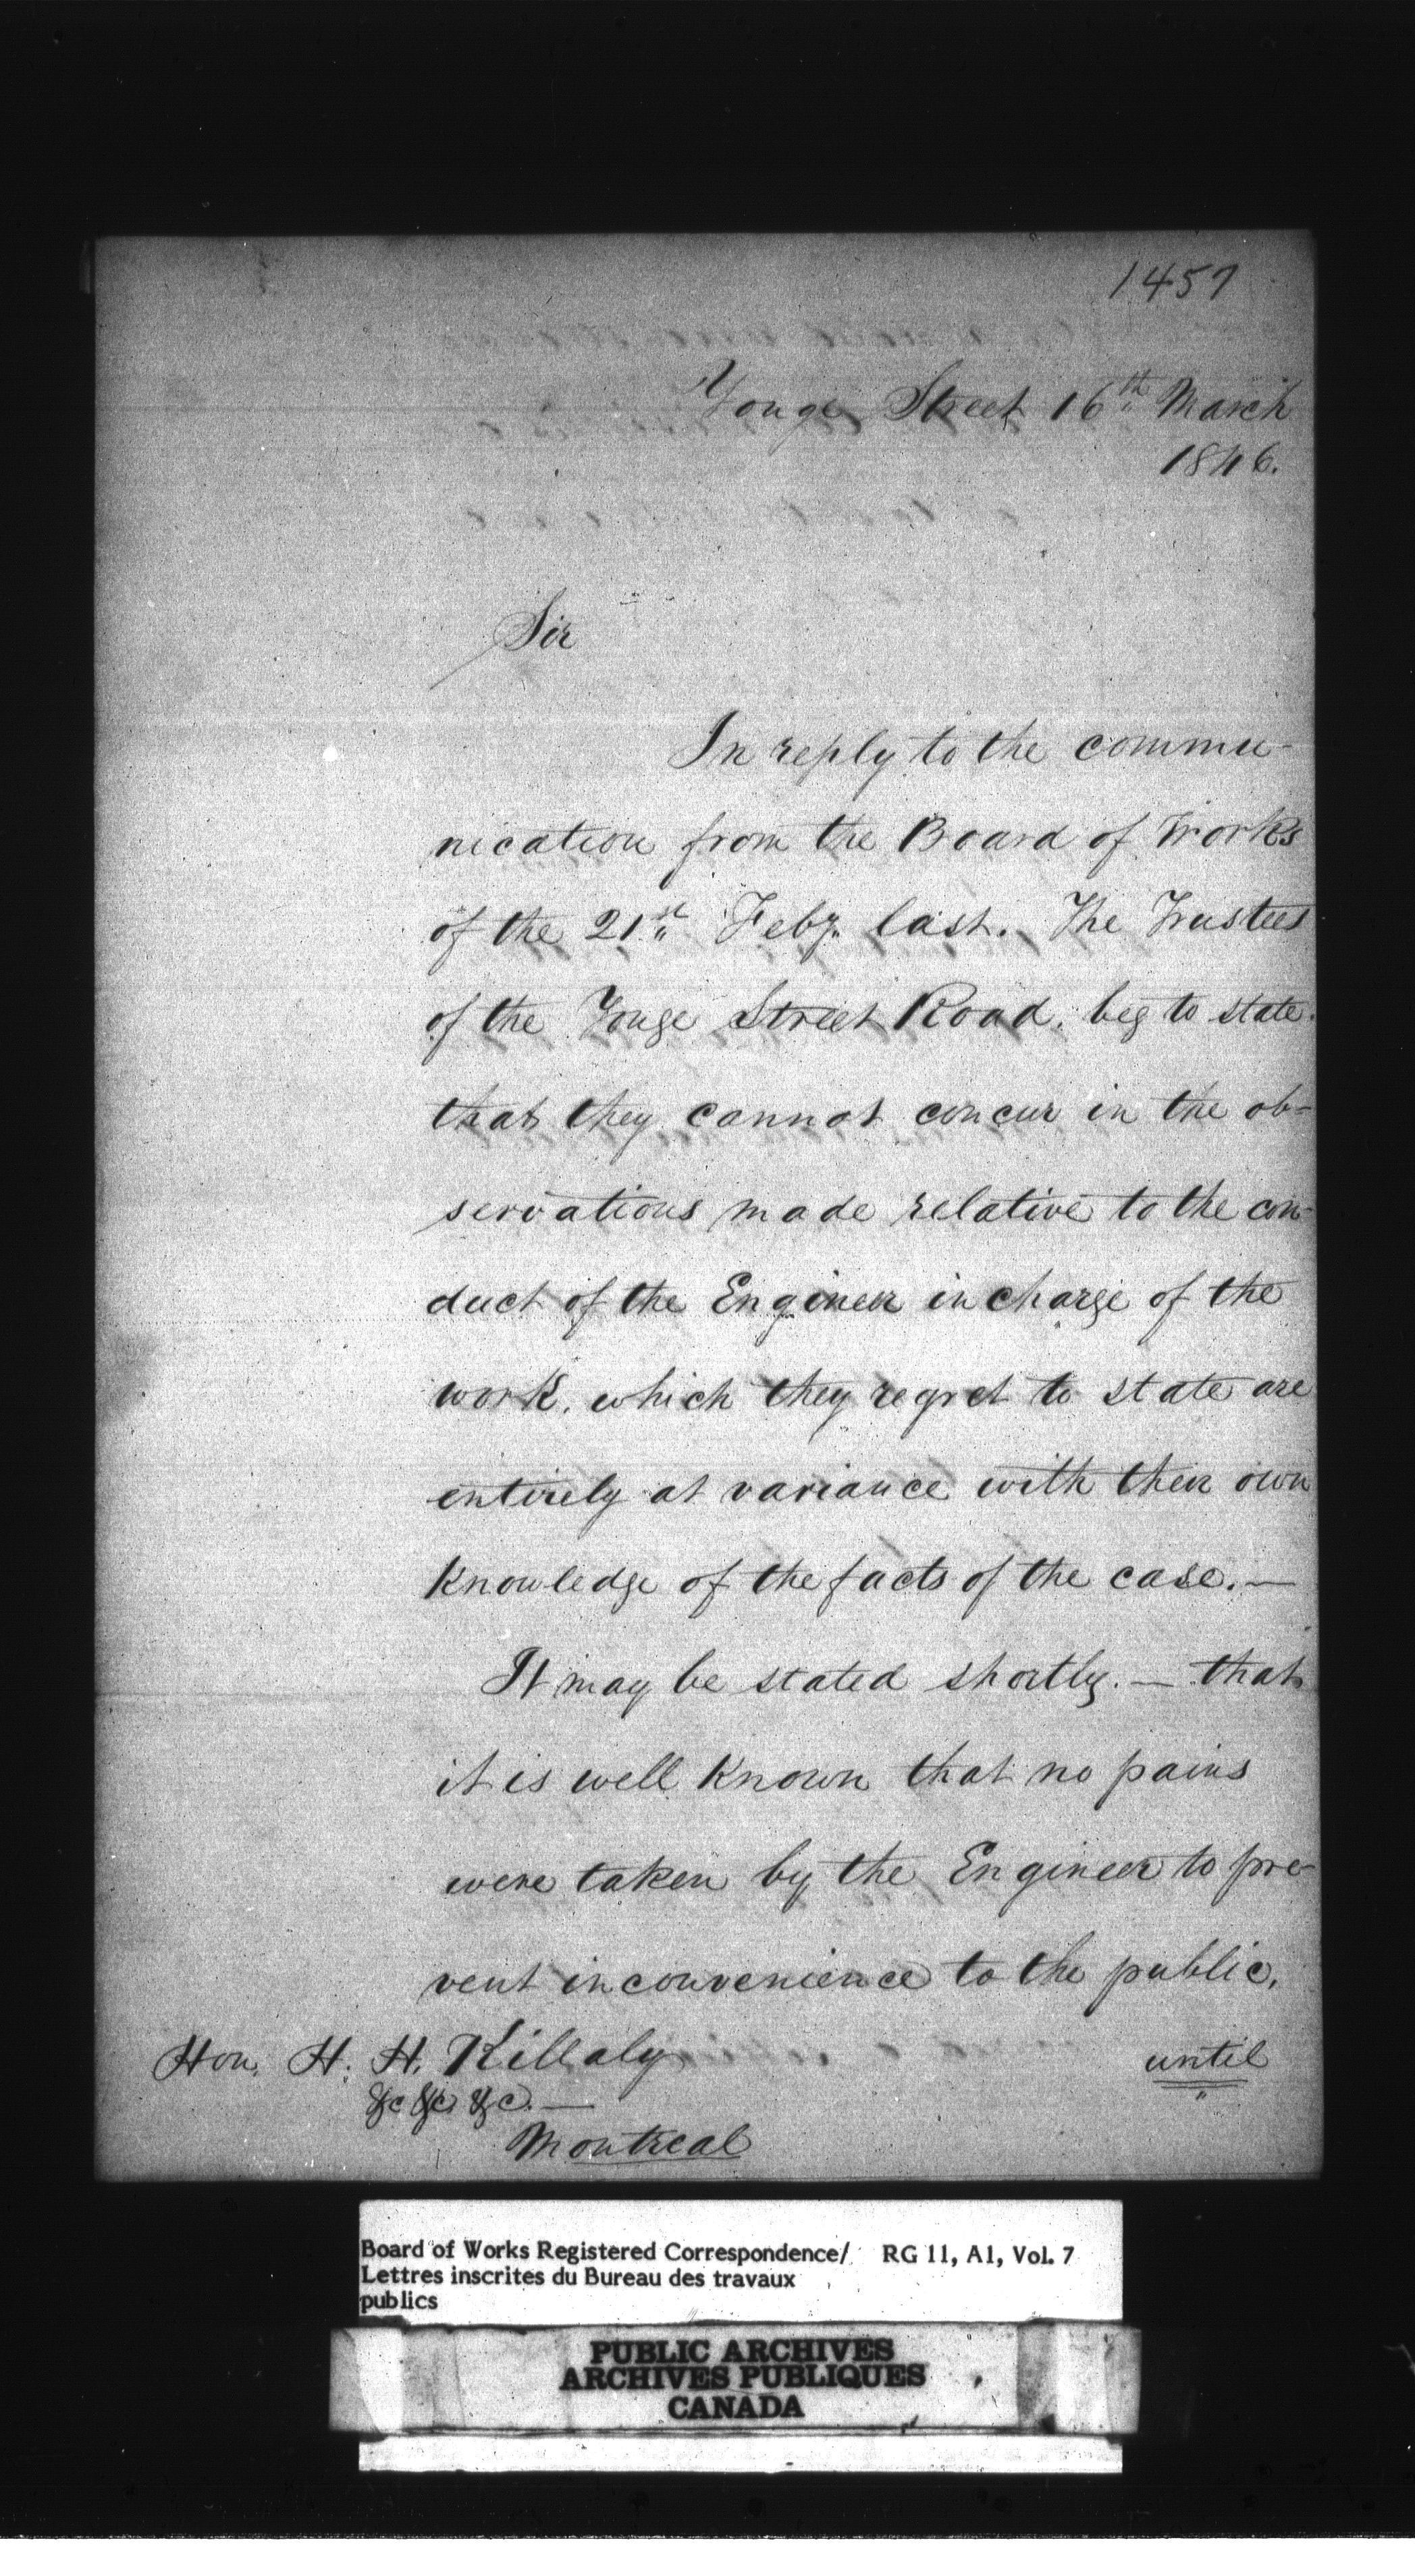 1457
Yonge Street 16th March
1846.
Sir
In reply to the commu-
nication from the Board of Works
of the 21st Feby. last. The Trustees
of the Yonge Street Road. beg to state.
that they cannot concur in the ob-
servations made relative to the con-
duct of the Engineer in charge of the
work. which they regret to state are
entirely at variance with their own
knowledge of the facts of the case. —
It may be stated shortly. — that
it is well known that no pains
were taken by the Engineer to pre-
vent inconvenience to the public,
until
Hon. H. H. Killaly
&c &c &c. —
Montreal
Board of Works Registered Correspondence/ RG 11, A1, Vol. 7
Lettres inscrites du Bureau des travaux
publics
PUBLIC ARCHIVES
ARCHIVES PUBLIQUES
CANADA